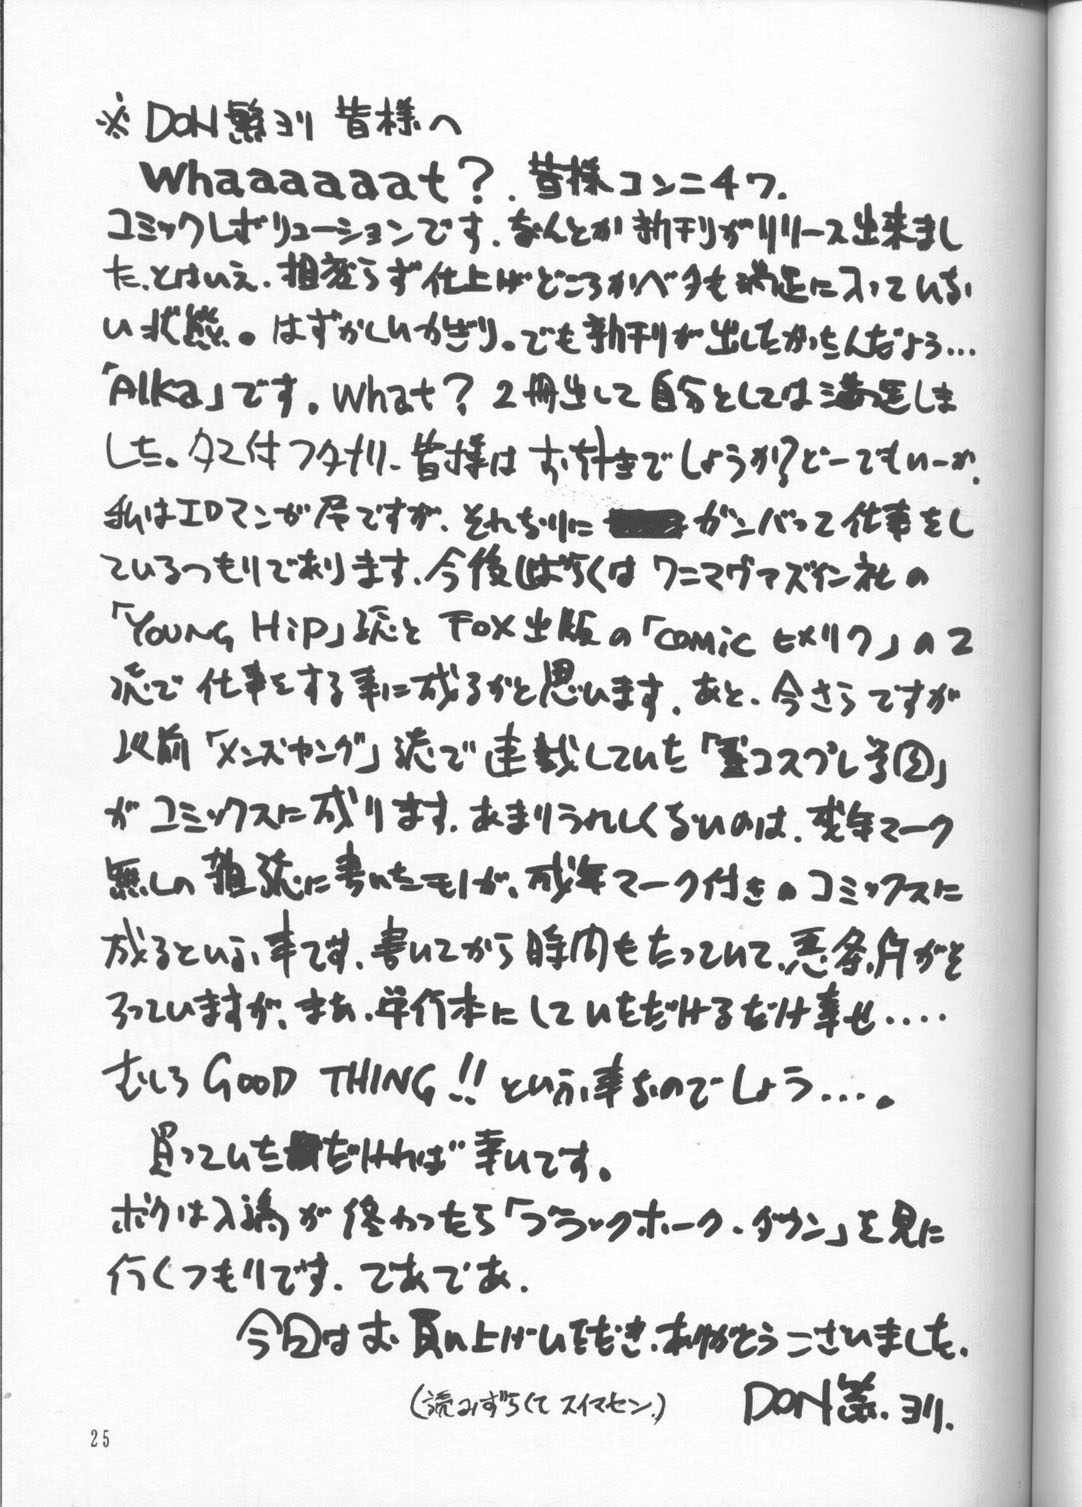 ※DON繁ヨリ 皆様へ
Whaaaaaaat?. 皆様コンニチワ.
コミックレボリューションです. なんとか新刊がリリース出来まし
た.とはいえ.相変らず仕上げどころかベタも満足に入っていな
い状態。はずかしいかぎり。でも新刊が出したかったんだよう…
「Alka」です。What? 2冊出して自分としては満足しま
した。タマ付フタナリ、皆様はお好きでしょうか?どーでもいーか.
私はエロマンガ屋ですが、それなりに ガンバって仕事をし
ているつもりであります.今後しばらくはワニマガズイン社の
「YOUNG HiP」誌とFOX出版の「comic ヒメリク」の2
誌で仕事をする事に成るかと思います. あと、今さらですが
以前「メンズヤング」誌で連載していた「コスプレ学園」
がコミックスに成ります.あまりうれしくないのは、成年マーク
無しの雑誌に書いたモノが、成年マーク付きのコミックスに
成るといふ事です.書いてから時間もたっていて、悪条件がそ
ろっていますが、まあ、単行本にしていただけるだけ幸せ‥‥
むしろ GOOD THING!! といふ事なのでしょう…。
買っていただければ幸いです。
ボクは入稿が終わったら「ブラックホーク・ダウン」を見に
行くつもりです. であであ.
今回はお買い上げいただき、ありがとうございました.
(読みずらくてスイマセン.)
DON繁.ヨリ.
25